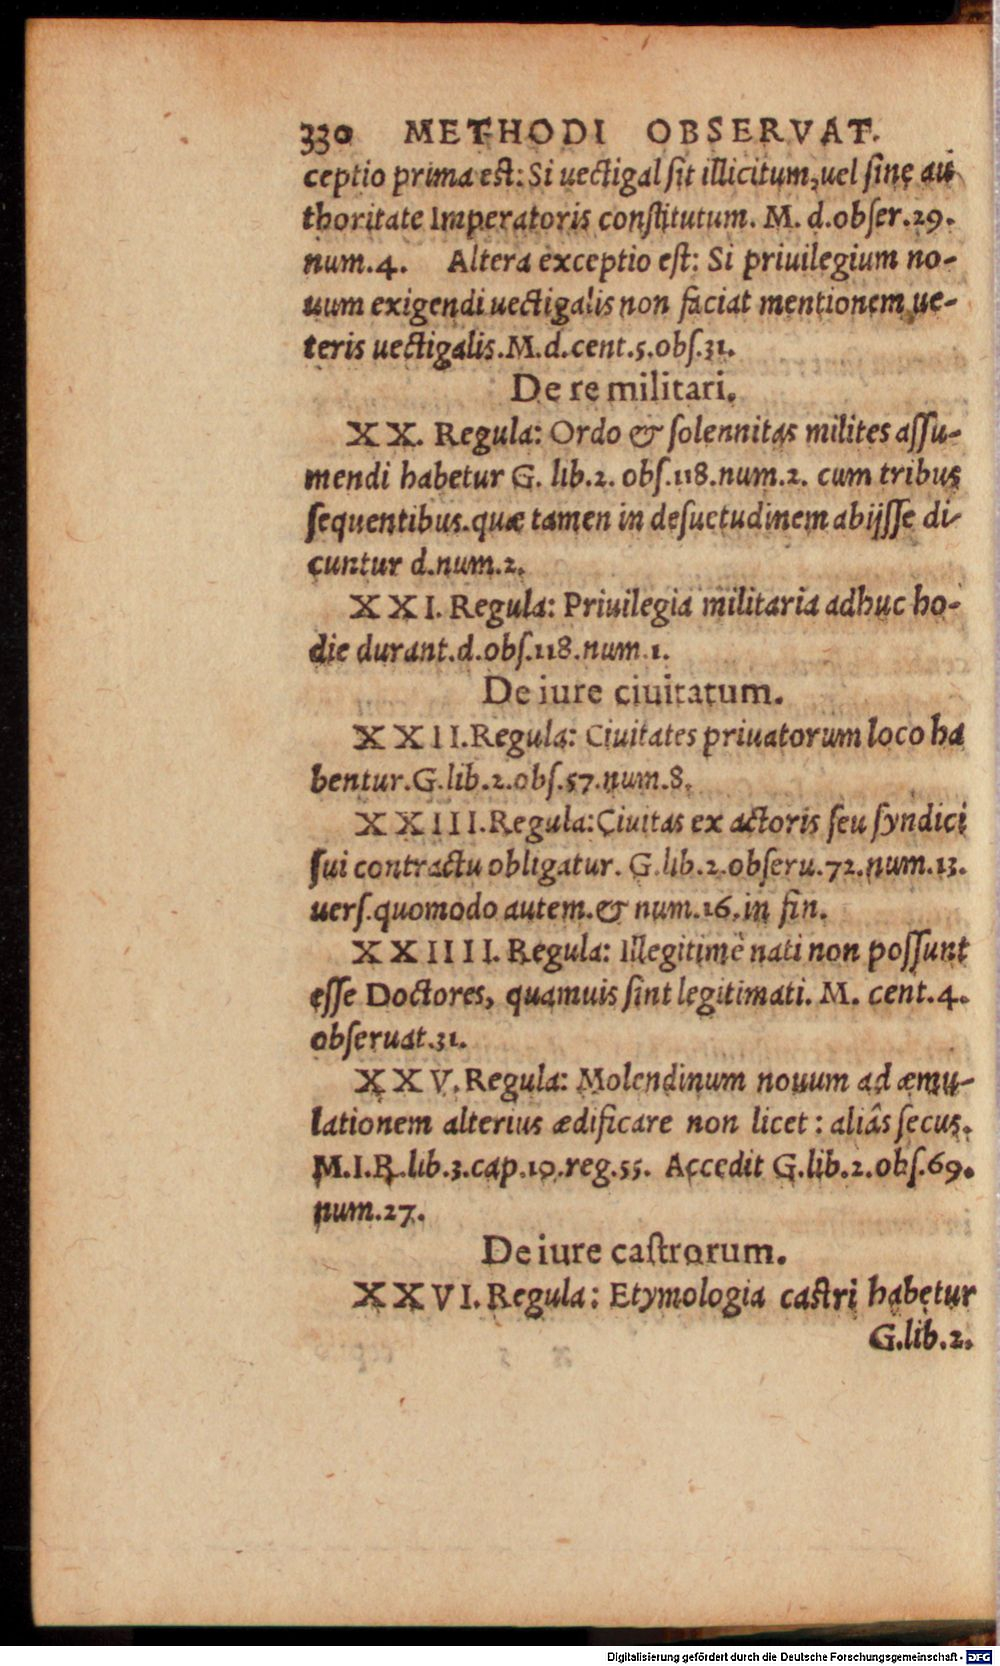 330 METHODI OBSERVAT.
ceptio prima est: Si uectigal sit illicitum, uel sine au
thoritate Imperatoris constitutum. M. d.obser.29.
num.4. Altera exceptio est: Si priuilegium no-
uum exigendi uectigalis non faciat mentionem ue-
teris uectigalis.M.d.cent.5.obs.31.
De re militari.
XX. Regula: Ordo & solennitas milites assu-
mendi habetur G. lib.2. obs.118.num.2. cum tribus
sequentibus.quæ tamen in desuetudinem abijsse di-
cuntur d.num.2.
XXI. Regula: Priuilegia militaria adhuc ho-
die durant.d.obs.118.num.1.
De iure ciuitatum.
XXII.Regula: Ciuitates priuatorum loco ha
bentur.G.lib.2.obs.57.num.8.
XXIII.Regula:Ciuitas ex actoris seu syndici
sui contractu obligatur. G.lib.2.obseru.72.num.13.
uers.quomodo autem.& num.16.in fin.
XXIIII. Regula: Illegitimè nati non possunt
esse Doctores, quamuis sint legitimati. M. cent.4.
obseruat.31.
XXV.Regula: Molendinum nouum ad æmu-
lationem alterius ædificare non licet: aliâs secus.
M.I.R.lib.3.cap.10.reg.55. Accedit G.lib.2.obs.69.
num.27.
De iure castrorum.
XXVI.Regula: Etymologia castri habetur
G.lib.2.
Digitalisierung gefördert durch die Deutsche Forschungsgemeinschaft - DFG